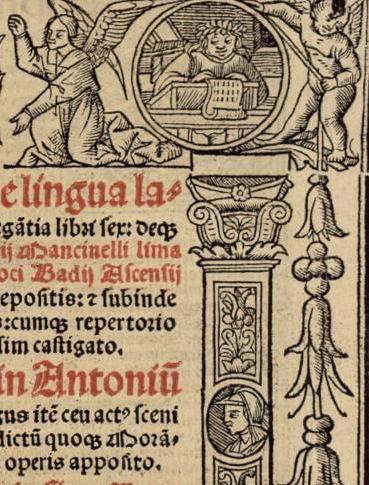 e lingua la⸗
gãtia libri sex: deqꝫ
ij Mancinelli lima
oci Badij Ascensij
epositis: ⁊ subinde
s: cumqꝫ repertorio
sim castigato.
in Antoniũ
gus itẽ ceu actꝰ sceni
dictũ quoqꝫ Morã⸗
operis apposito.